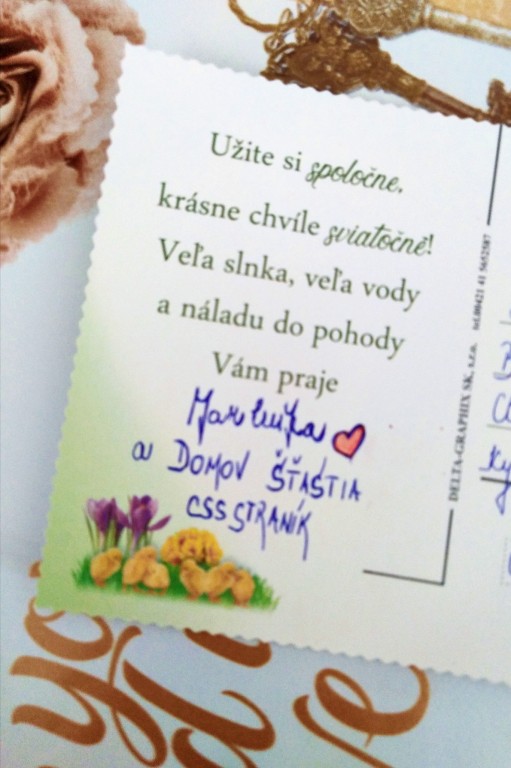 Užite si spoločne,
krásne chvíle sviatočné!
Veľa slnka, veľa vody
a náladu do pohody
Vám praje
Martuška
a DOMOV ŠŤASTIA
CSS STRANÍK
DELTA-GRAPHIX SK, s.r.o. tel.00421 41 5652587